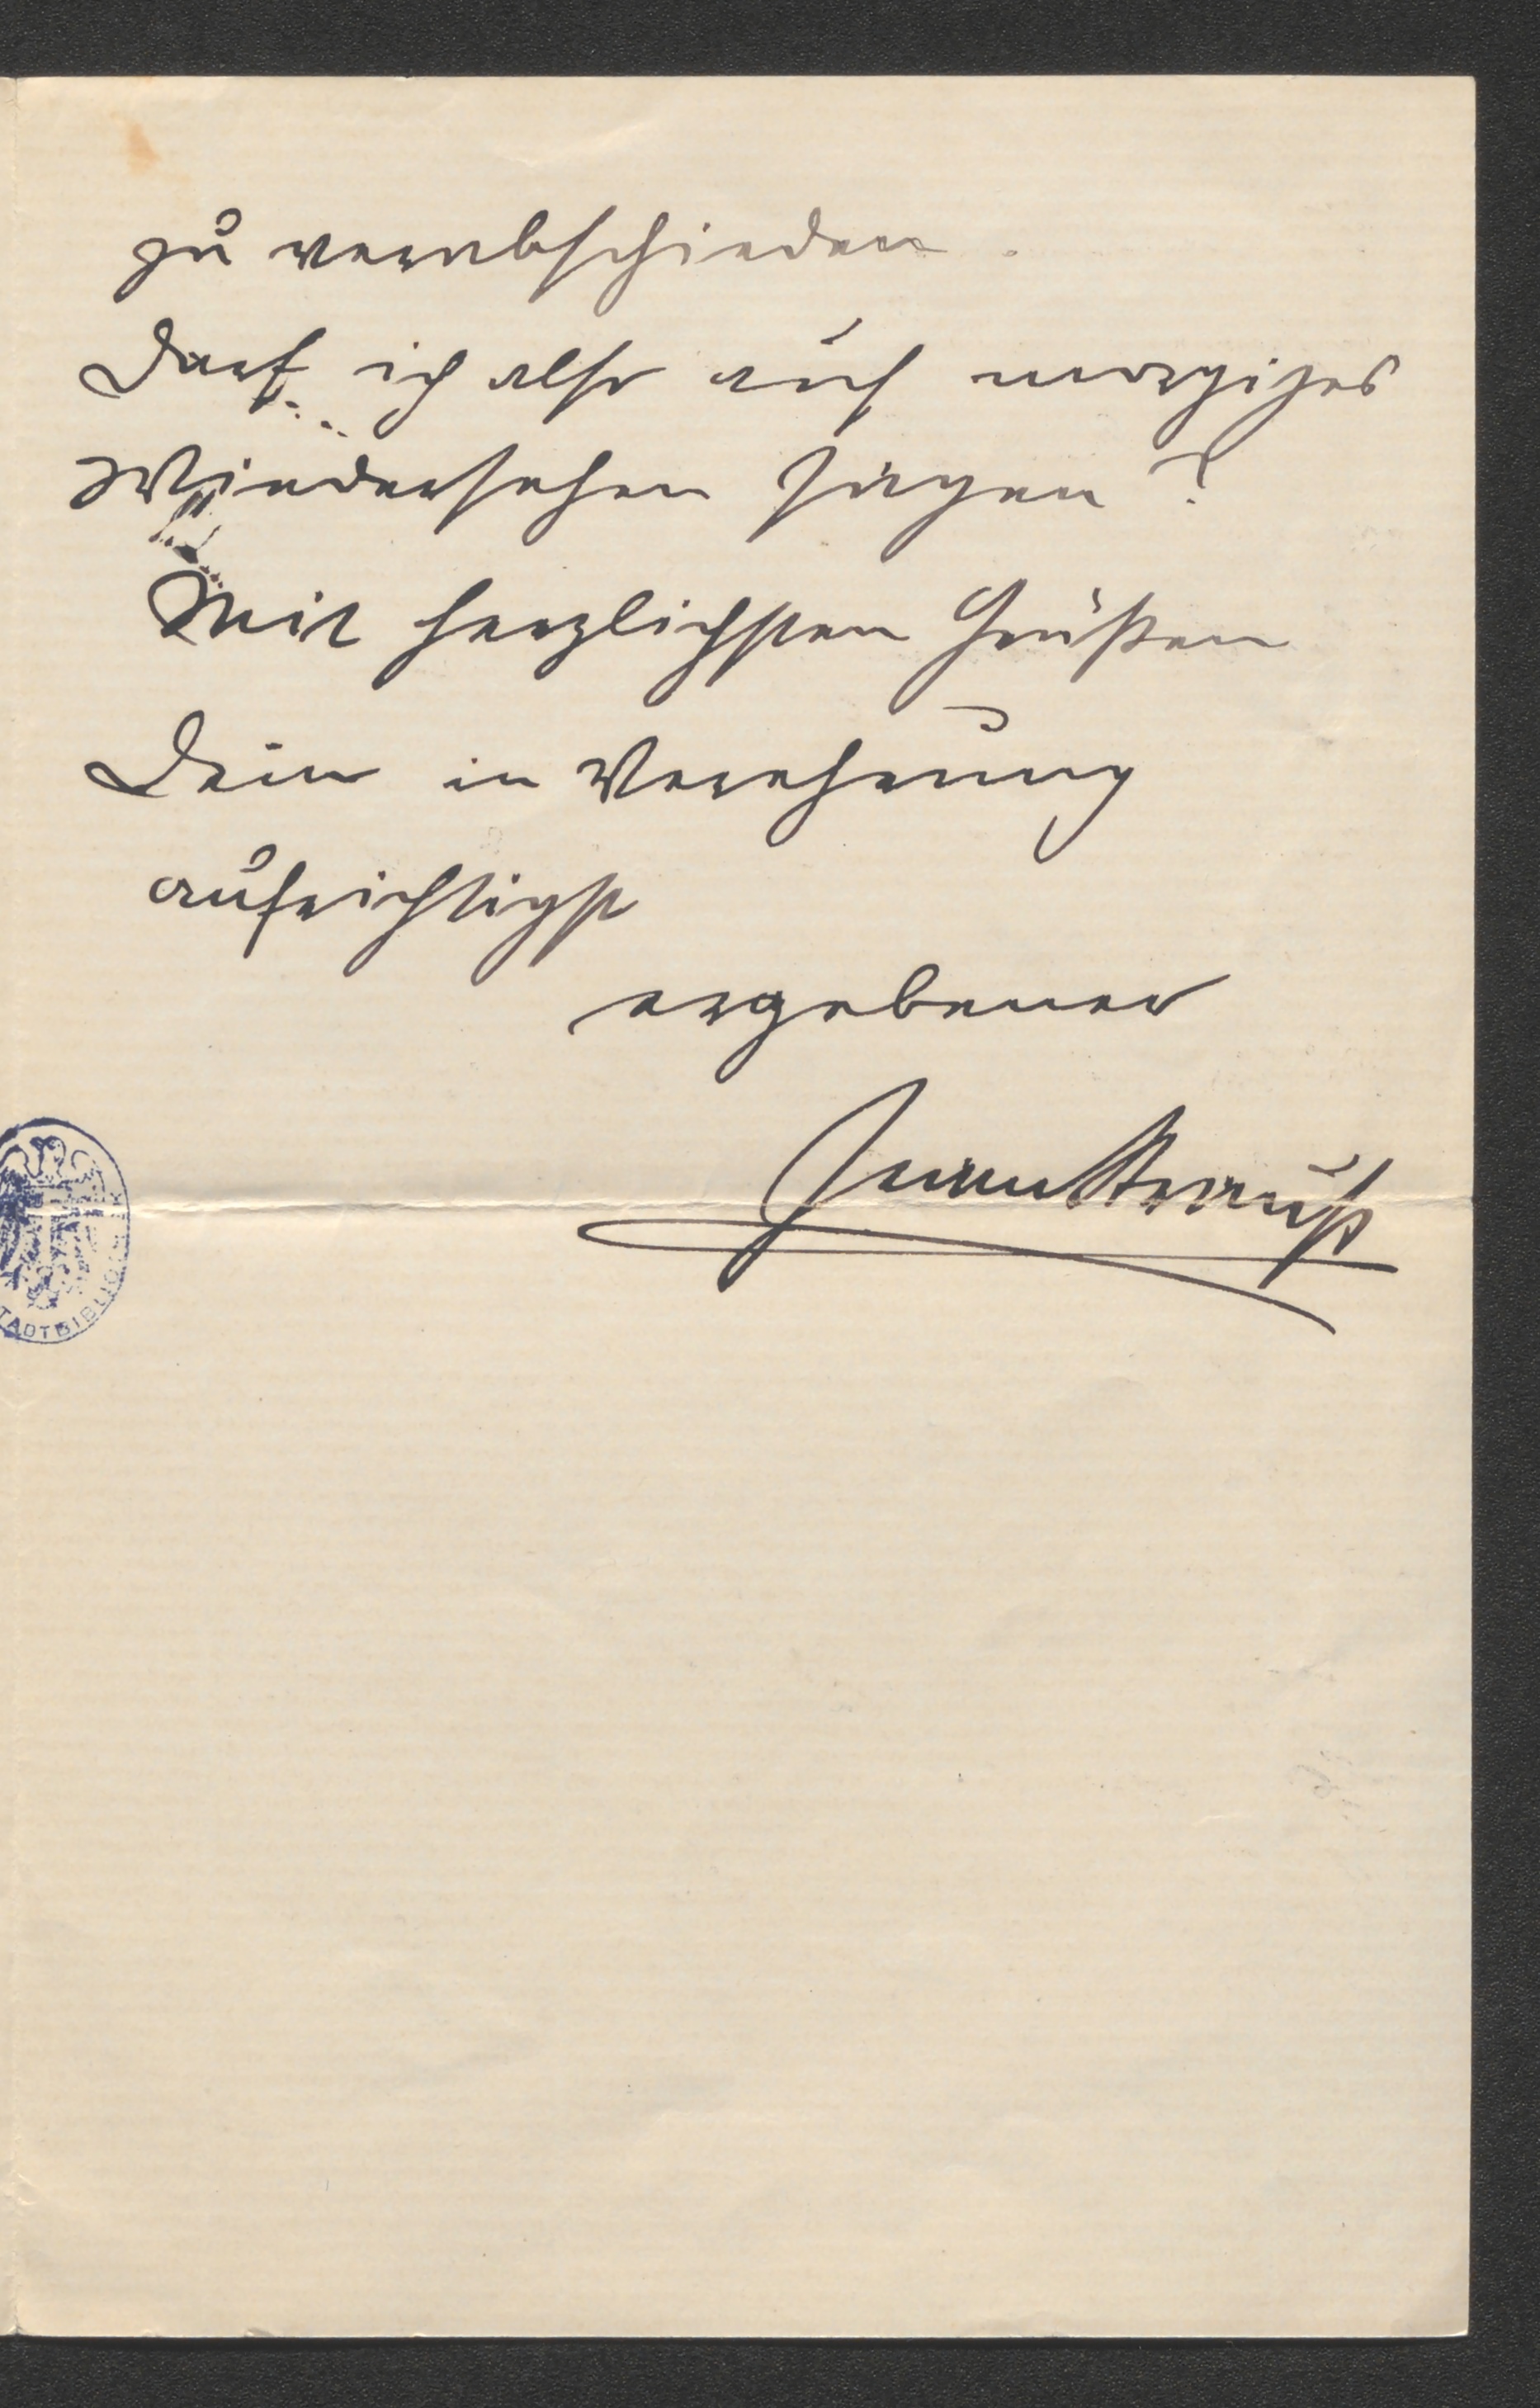 zu verabschieden.
Darf ich also auf morgiges
Wiedersehen sagen?
Mit herzlichsten Grüßen
Dein in Verehrung
aufrichtigst
ergebener
Strauß